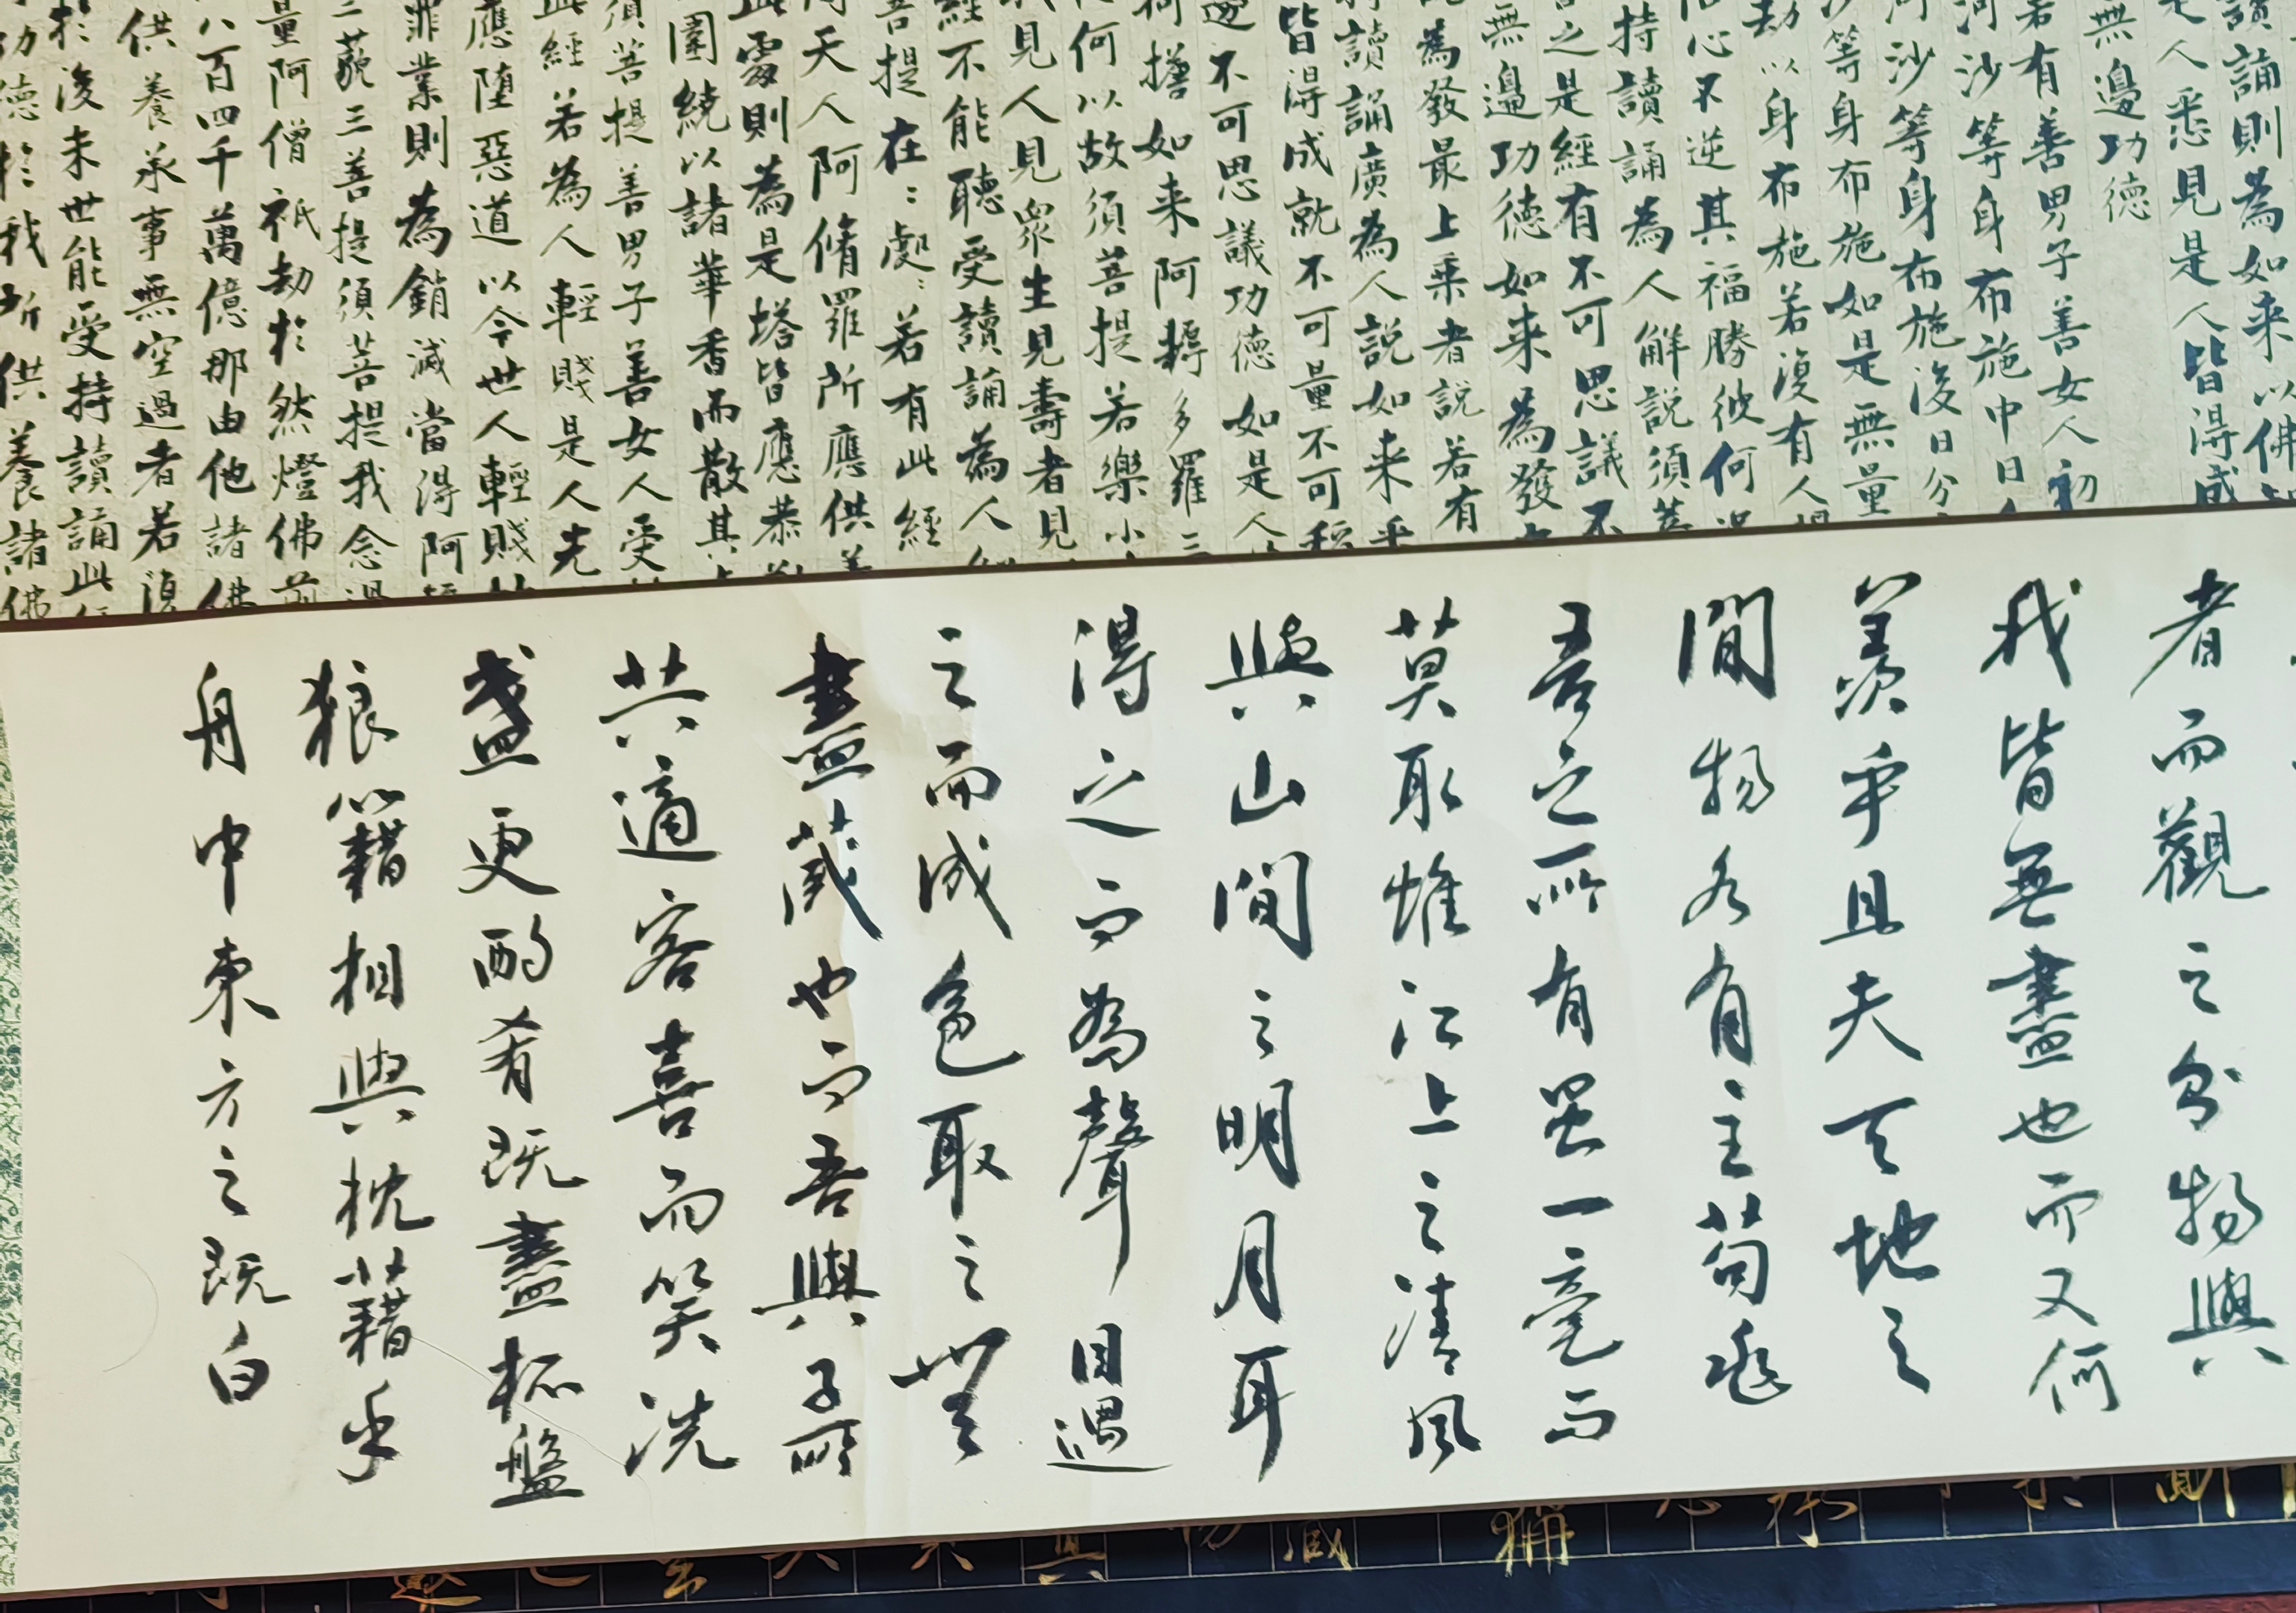 讀誦則為如来以佛
是人悉見是人皆得成
無邊功德
若有善男子善女人初
河沙等身布施中日
河沙等身布施後日分
沙等身布施如是無量
劫以身布施若復有人
信心不逆其福勝彼何況
持讀誦為人解說須菩
言之是經有不可思議不
無邊功德如来為發
說為發最上乘者說若有
持讀誦廣為人說如来悉
皆得成就不可量不可稱
邊不可思議功德如是人
荷擔如来阿耨多羅三
何以故須菩提若樂小
我見人見眾生見壽者見
經不能聽受讀誦為人
菩提在:處:若有此經
間天人阿脩羅所應供養
此處則為是塔皆應恭
圍繞以諸華香而散其
須菩提善男子善女人受
此經若為人輕賤是人先
應堕惡道以今世人輕賤
罪業則為銷滅當得阿
三藐三菩提須菩提我念過
量阿僧祇劫於然燈佛前
八百四千萬億那由他諸佛
供養承事無空過者若復
於後末世能受持讀誦此
功德於我所供養諸佛
者而觀之則物與
我皆無盡也而又何
羨乎且夫天地之
間物各有主苟非
吾之所有雖一毫而
莫取惟江上之清風
與山間之明月耳
得之而為聲目遇
之而成色取之無
盡藏也而吾與子所
共適客喜而笑洗
盞更酌肴既盡杯盤
狼籍相與枕藉乎
舟中東方之既白